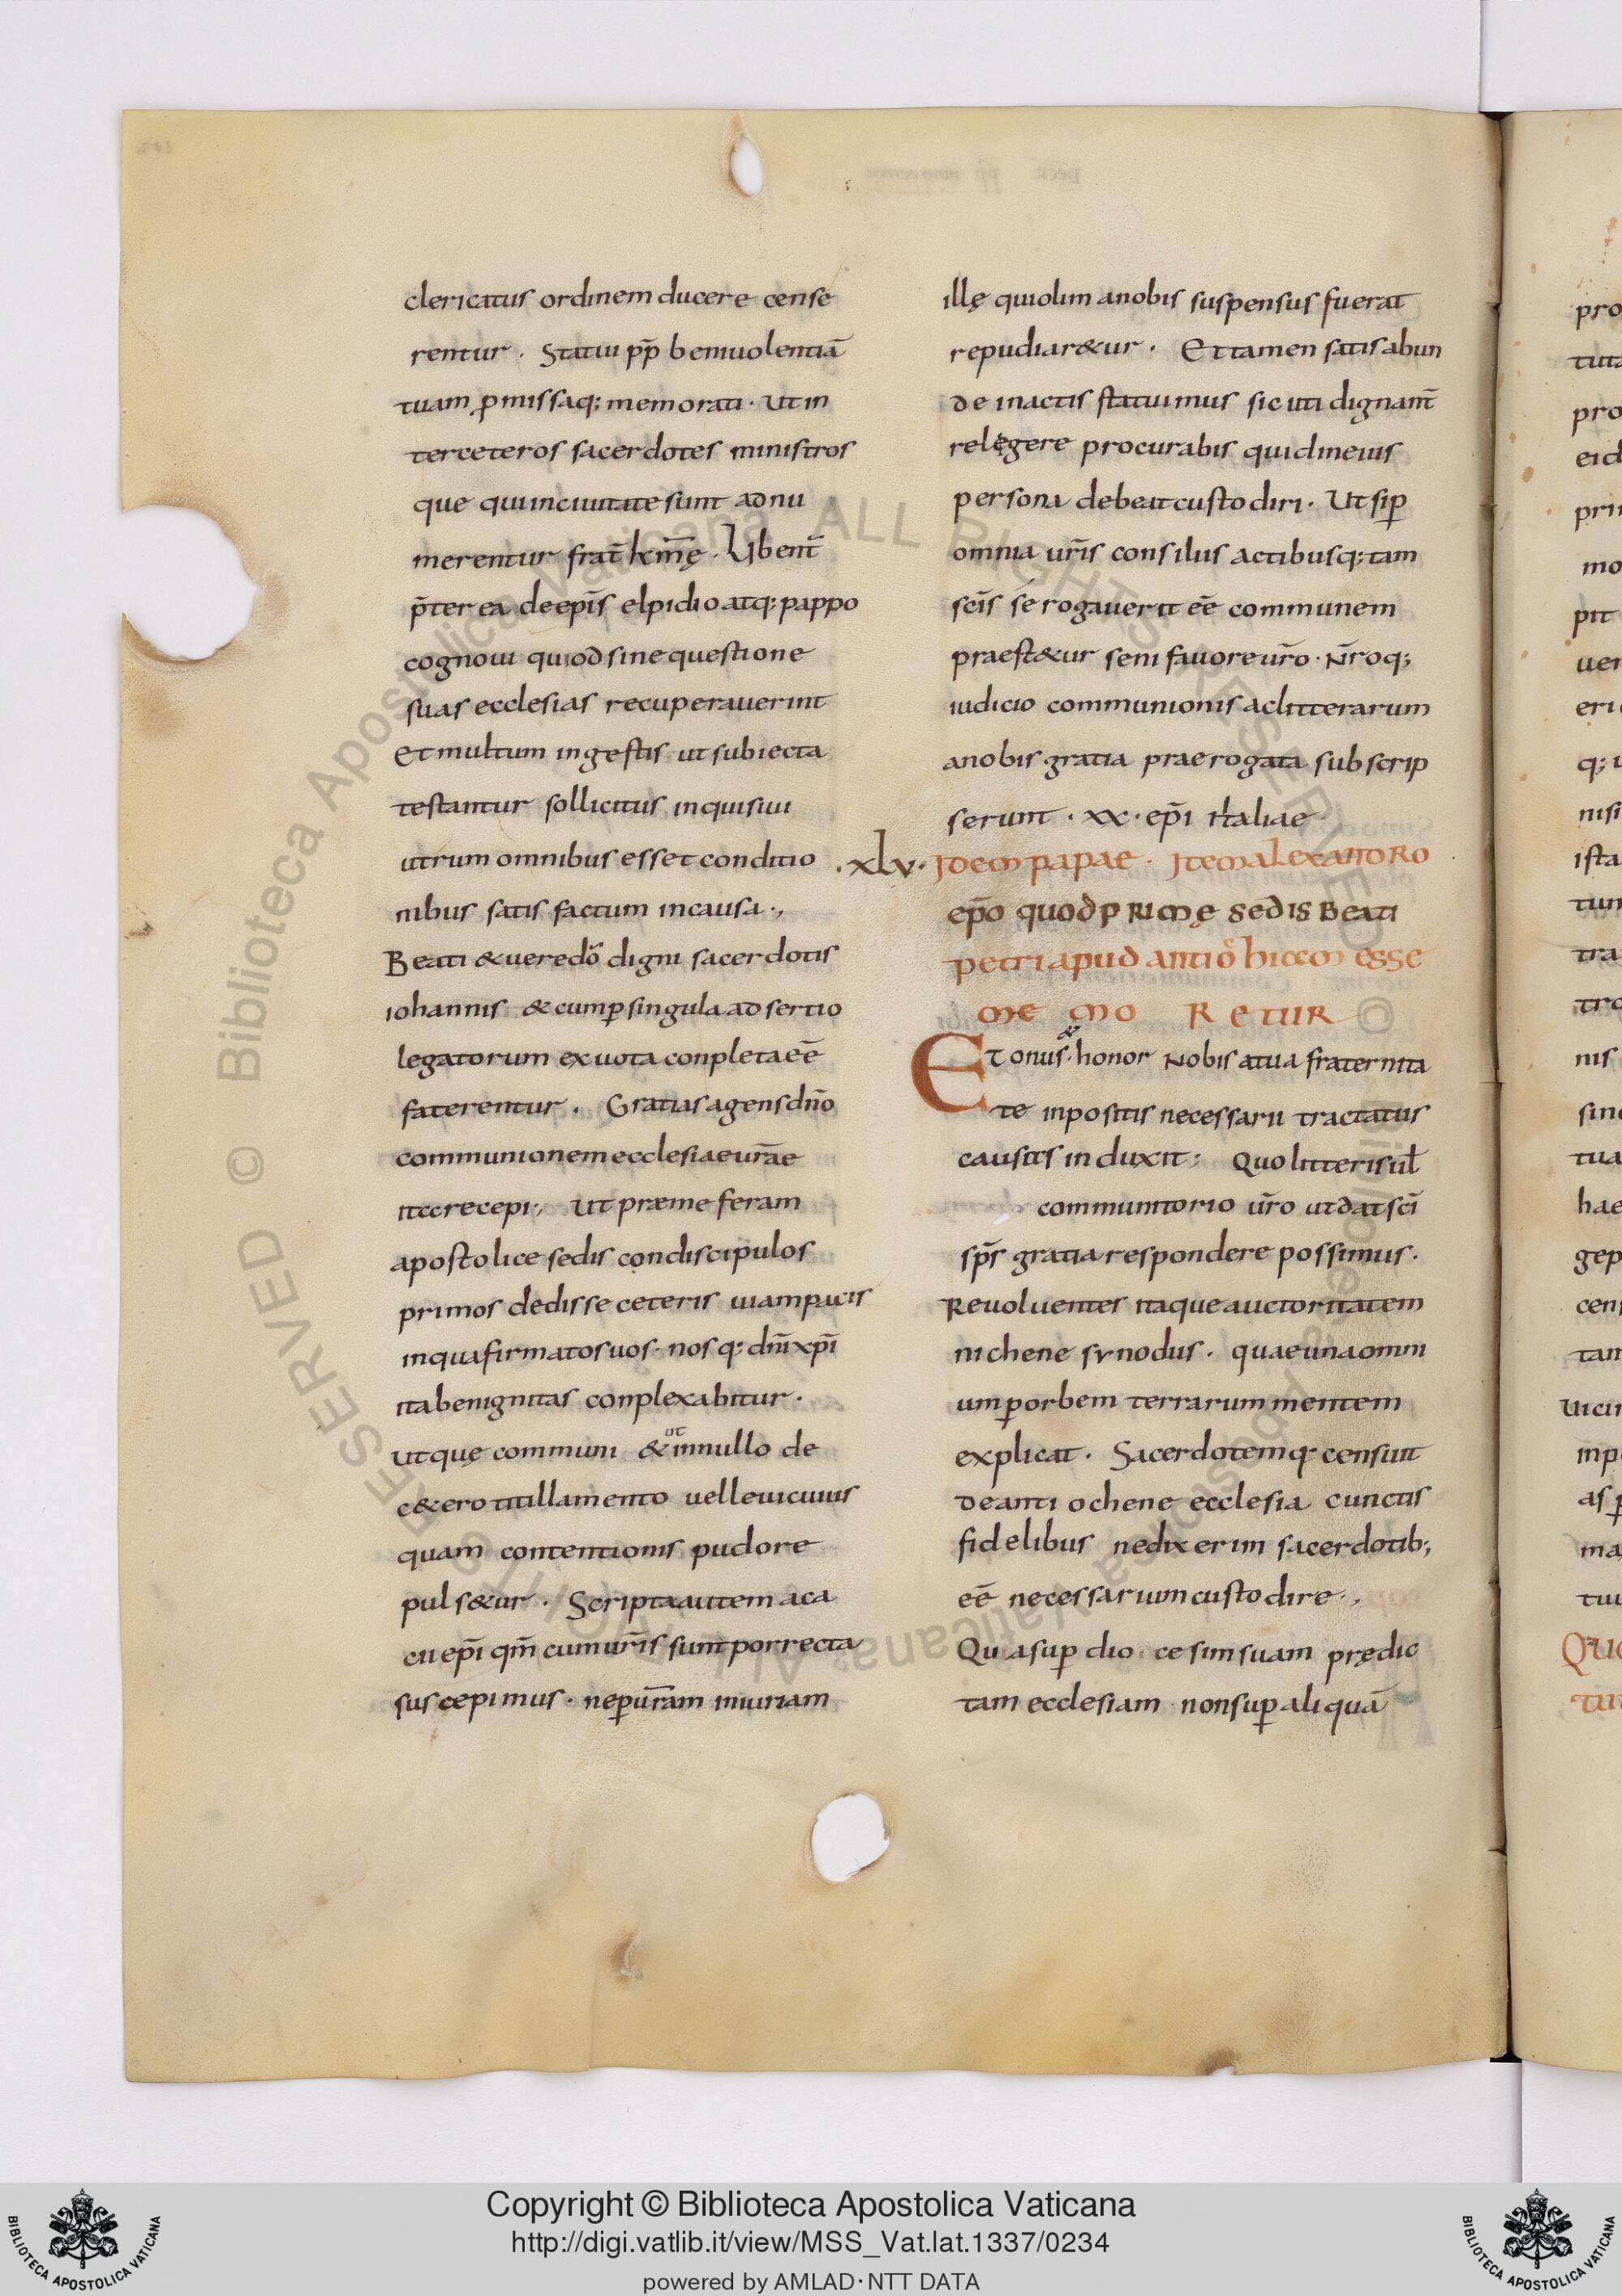 clericatus ordinem ducere cense
rentur. Statui pp̄ beniuolentiā
tuam ꝑmissaq; memorati. Ut in
terceteros sacerdotes ministros
que qui inciuitate sunt adnu
merentur frat̄ km̄ę. Libent̄
p̄terea deepīs elpidio atq; pappo
cognoui quod sine questione
suas ecclesias recuperauerint
Et multum ingestis ut subiecta
testantur sollicitus inquisiui
utrum omnibus esset conditio
nibus satis factum incausa.,
Beati & uere dō digni sacerdotis
iohannis & cum ꝑ singula adsertio
legatorum ex uota conpleta eē
faterentur. Gratias agens dn̄o
communionem ecclesiae ur̄ae
itccrecepi., Ut prae me feram
apostolice sedis condiscipulos
primos dedisse ceteris uiam pacis
inqua firmatos uos. nosq: dn̄i xp̄i
ita benignitas conplexabitur.
utquę communi & ut innullo de
c&ero titillamento uelleuicuius
quam contentionis pudore
puls&ur. Scripta autem aca
cii ep̄i qm̄ cum ur̄is sunt porrecta
suscepimus. ne ꝑ ur̄am iniuriam
illę qui olim anobis suspensus fuerat
repudiar&ur. Et tamen satis abun
de inactis statuimus sicuti dignant̄
relęgere procurabis quid ineius
persona debeat custodiri. Ut siꝑ
omnia ur̄is consiliis actibusq; tam
scīs se rogauerit eē communem
praest&ur seni fauore ur̄o. Nr̄oq;
iudicio communionis ac litterarum
anobis gratia praerogata subscrip
serunt. xx. ep̄i italiae.
.xlv. Idem papae. Item alexandro
ep̄o quod primę sedis Beati
petri apud antiohiccm esse
me mo Retur
Et onus. & honor Nobis atua fraternita
te inpositis necessarii tractatus
causas induxit; Quo litteris ul̄
communitorio ur̄o ut dat scī
sp̄s gratia respondere possimus.
Reuoluentes itaque auctoritatem
nichene synodus. quae una omni
um ꝑ orbem terrarum mentem
explicat. Sacerdotemq. censuit
deanti ochene ecclesia cunctis
fidelibus nedixerim sacerdotib;
eē necessarium custodire.,
Qua suꝑ diocesim suam prędic
tam ecclesiam non suꝑ aliquā
Copyright © Biblioteca Apostolica Vaticana
http://digi.vatlib.it/view/MSS_Vat.lat.1337/0234
powered by AMLAD·NTT DATA